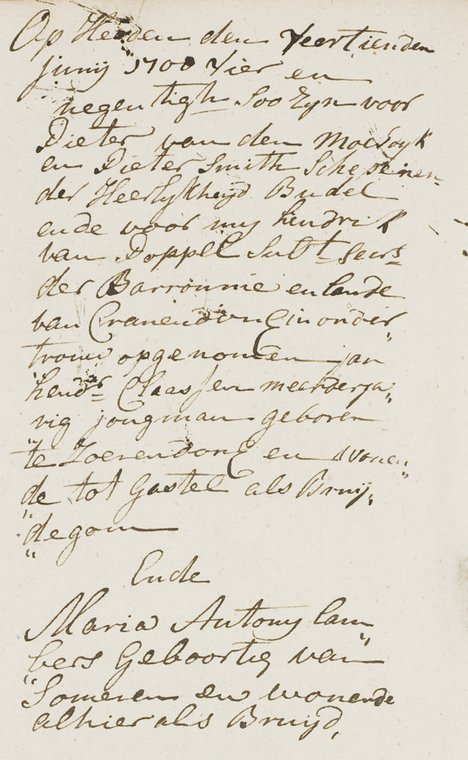 Op Heeden den Veertienden
Junij 1700 Vier en
negentigh Soo Zyn voor
Pieter van den Moesdyk
en Pieter Smith Schepenen
der Heerlykheyd Budel
ende voor my hendrik
van Poppel Subt Secrs
der Barronnie en lande
van Cranendonck in onder"
trouw opgenomen jan
hendr Claassen meerderja"
"rig jongman geboren
"te Zoerendonq en wonen"
"de tot Gastel als Bruij"
"degom
Ende
Maria Antony lam"
bers Geboortig van
"Someren en wonende
alhier als Bruijd,